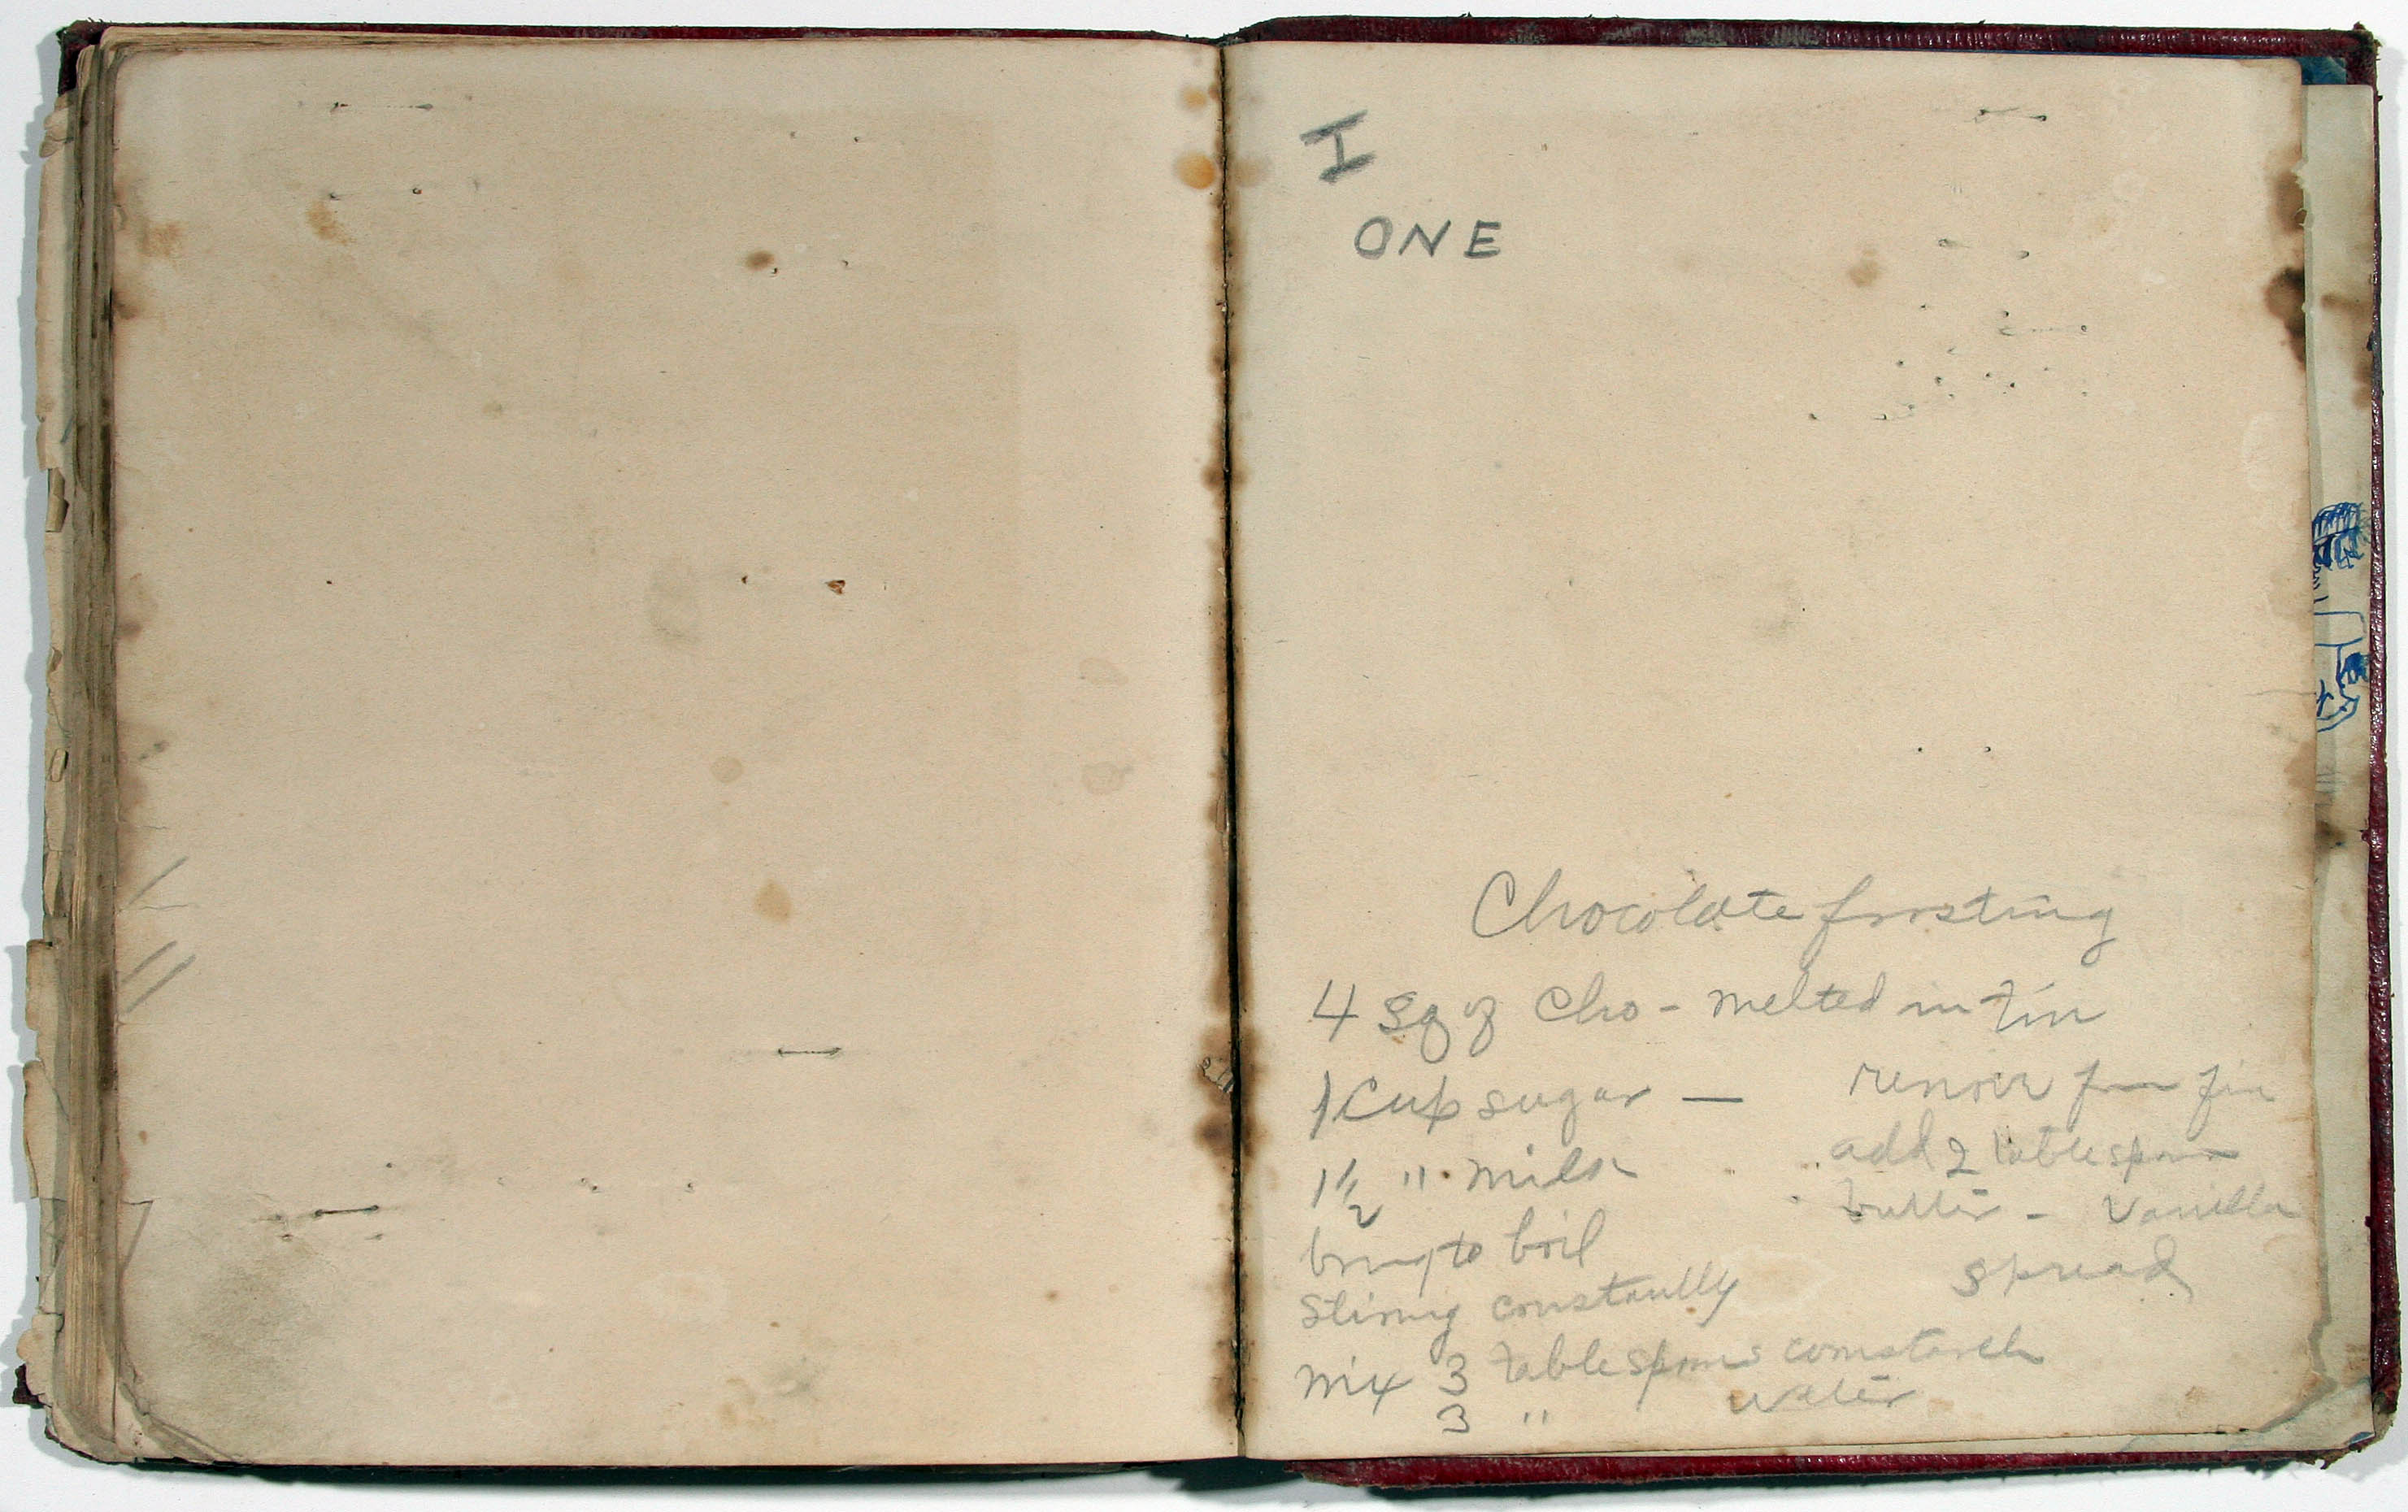 I
ONE
Chocolate frosting
4 sq of Cho - melted in tin
1 Cup sugar —
1 1/2 " milk
bring to boil
Stiring constantly
mix 3 tablespoons cornstarch
3 " water
remove from fire
add 2 tablespoons
butter - Vanilla
spread